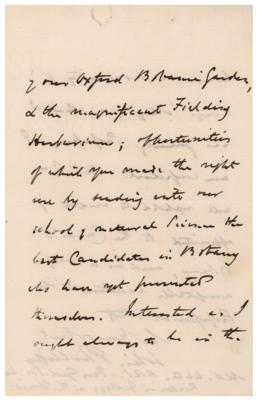 your Oxford Botanic Garden,
& the magnificent Fielding
Herbarium; opportunities
of which you made the right
use by sending into our
school of natural Science the
best Candidates in Botany
who have yet presented
themselves. Interested as I
ought always to be in the